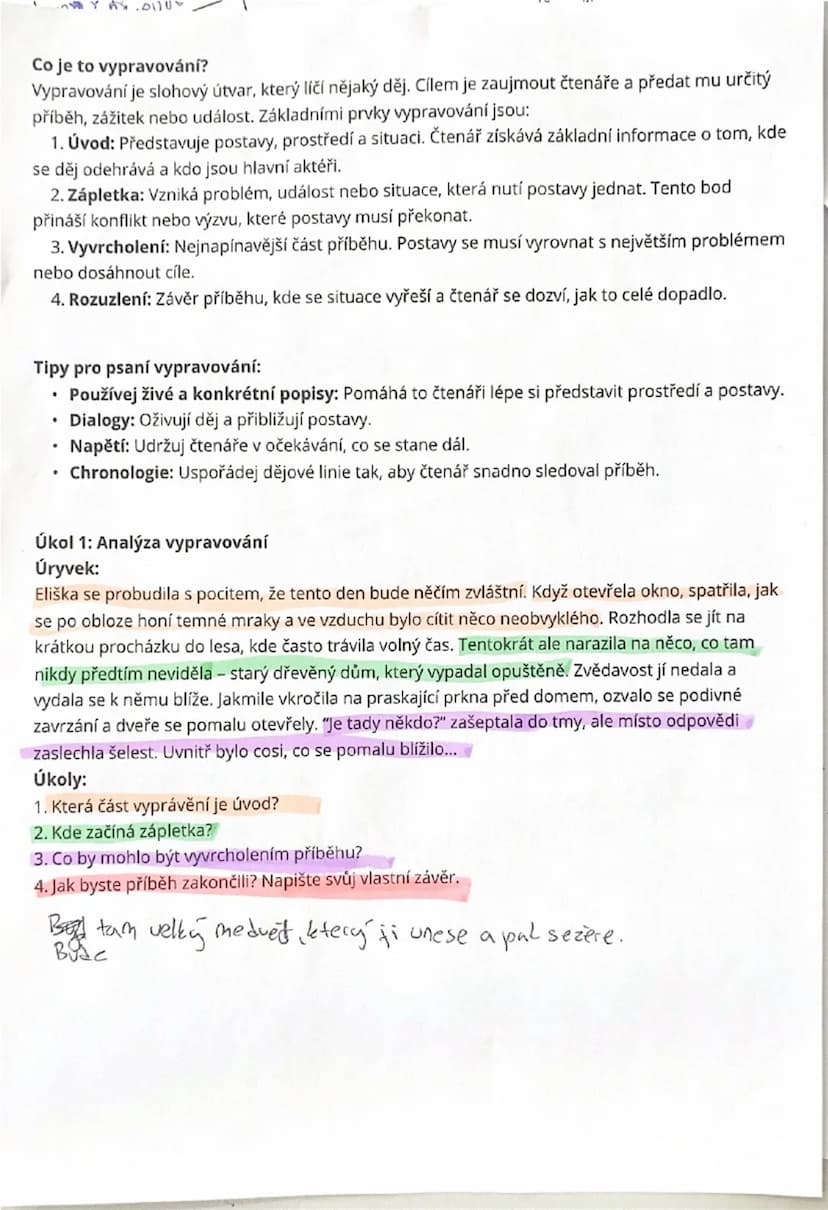 Co je to vypravování?
Vypravování je slohový útvar, který líčí nějaký děj. Cílem je zaujmout čtenáře a předat mu určitý
příběh, zážitek nebo událost. Základními prvky vypravování jsou:
1. Úvod: Představuje postavy, prostředí a situaci. Čtenář získává základní informace o tom, kde
se děj odehrává a kdo jsou hlavní aktéři.
2. Zápletka: Vzniká problém, událost nebo situace, která nutí postavy jednat. Tento bod
přináší konflikt nebo výzvu, které postavy musí překonat.
3. Vyvrcholení: Nejnapínavější část příběhu. Postavy se musí vyrovnat s největším problémem
nebo dosáhnout cíle.
4. Rozuzlení: Závěr příběhu, kde se situace vyřeší a čtenář se dozví, jak to celé dopadlo.
Tipy pro psaní vypravování:
• Používej živé a konkrétní popisy: Pomáhá to čtenáři lépe si představit prostředí a postavy.
• Dialogy: Oživují děj a přibližují postavy.
• Napětí: Udržuj čtenáře v očekávání, co se stane dál.
• Chronologie: Uspořádej dějové linie tak, aby čtenář snadno sledoval příběh.
Úkol 1: Analýza vypravování
Úryvek:
Eliška se probudila s pocitem, že tento den bude něčím zvláštní. Když otevřela okno, spatřila, jak
se po obloze honí temné mraky a ve vzduchu bylo cítit něco neobvyklého. Rozhodla se jít na
krátkou procházku do lesa, kde často trávila volný čas. Tentokrát ale narazila na něco, co tam
nikdy předtím neviděla – starý dřevěný dům, který vypadal opuštěně. Zvědavost jí nedala a
vydala se k němu blíže. Jakmile vkročila na praskající prkna před domem, ozvalo se podivné
zavrzání a dveře se pomalu otevřely. "Je tady někdo?" zašeptala do tmy, ale místo odpovědi
zaslechla šelest. Uvnitř bylo cosi, co se pomalu blížilo...
Úkoly:
1. Která část vyprávění je úvod?
2. Kde začíná zápletka?
3. Co by mohlo být vyvrcholením příběhu?
4. Jak byste příběh zakončili? Napište svůj vlastní závěr.
tam velký medvěd, který ji unese a pak sežere.